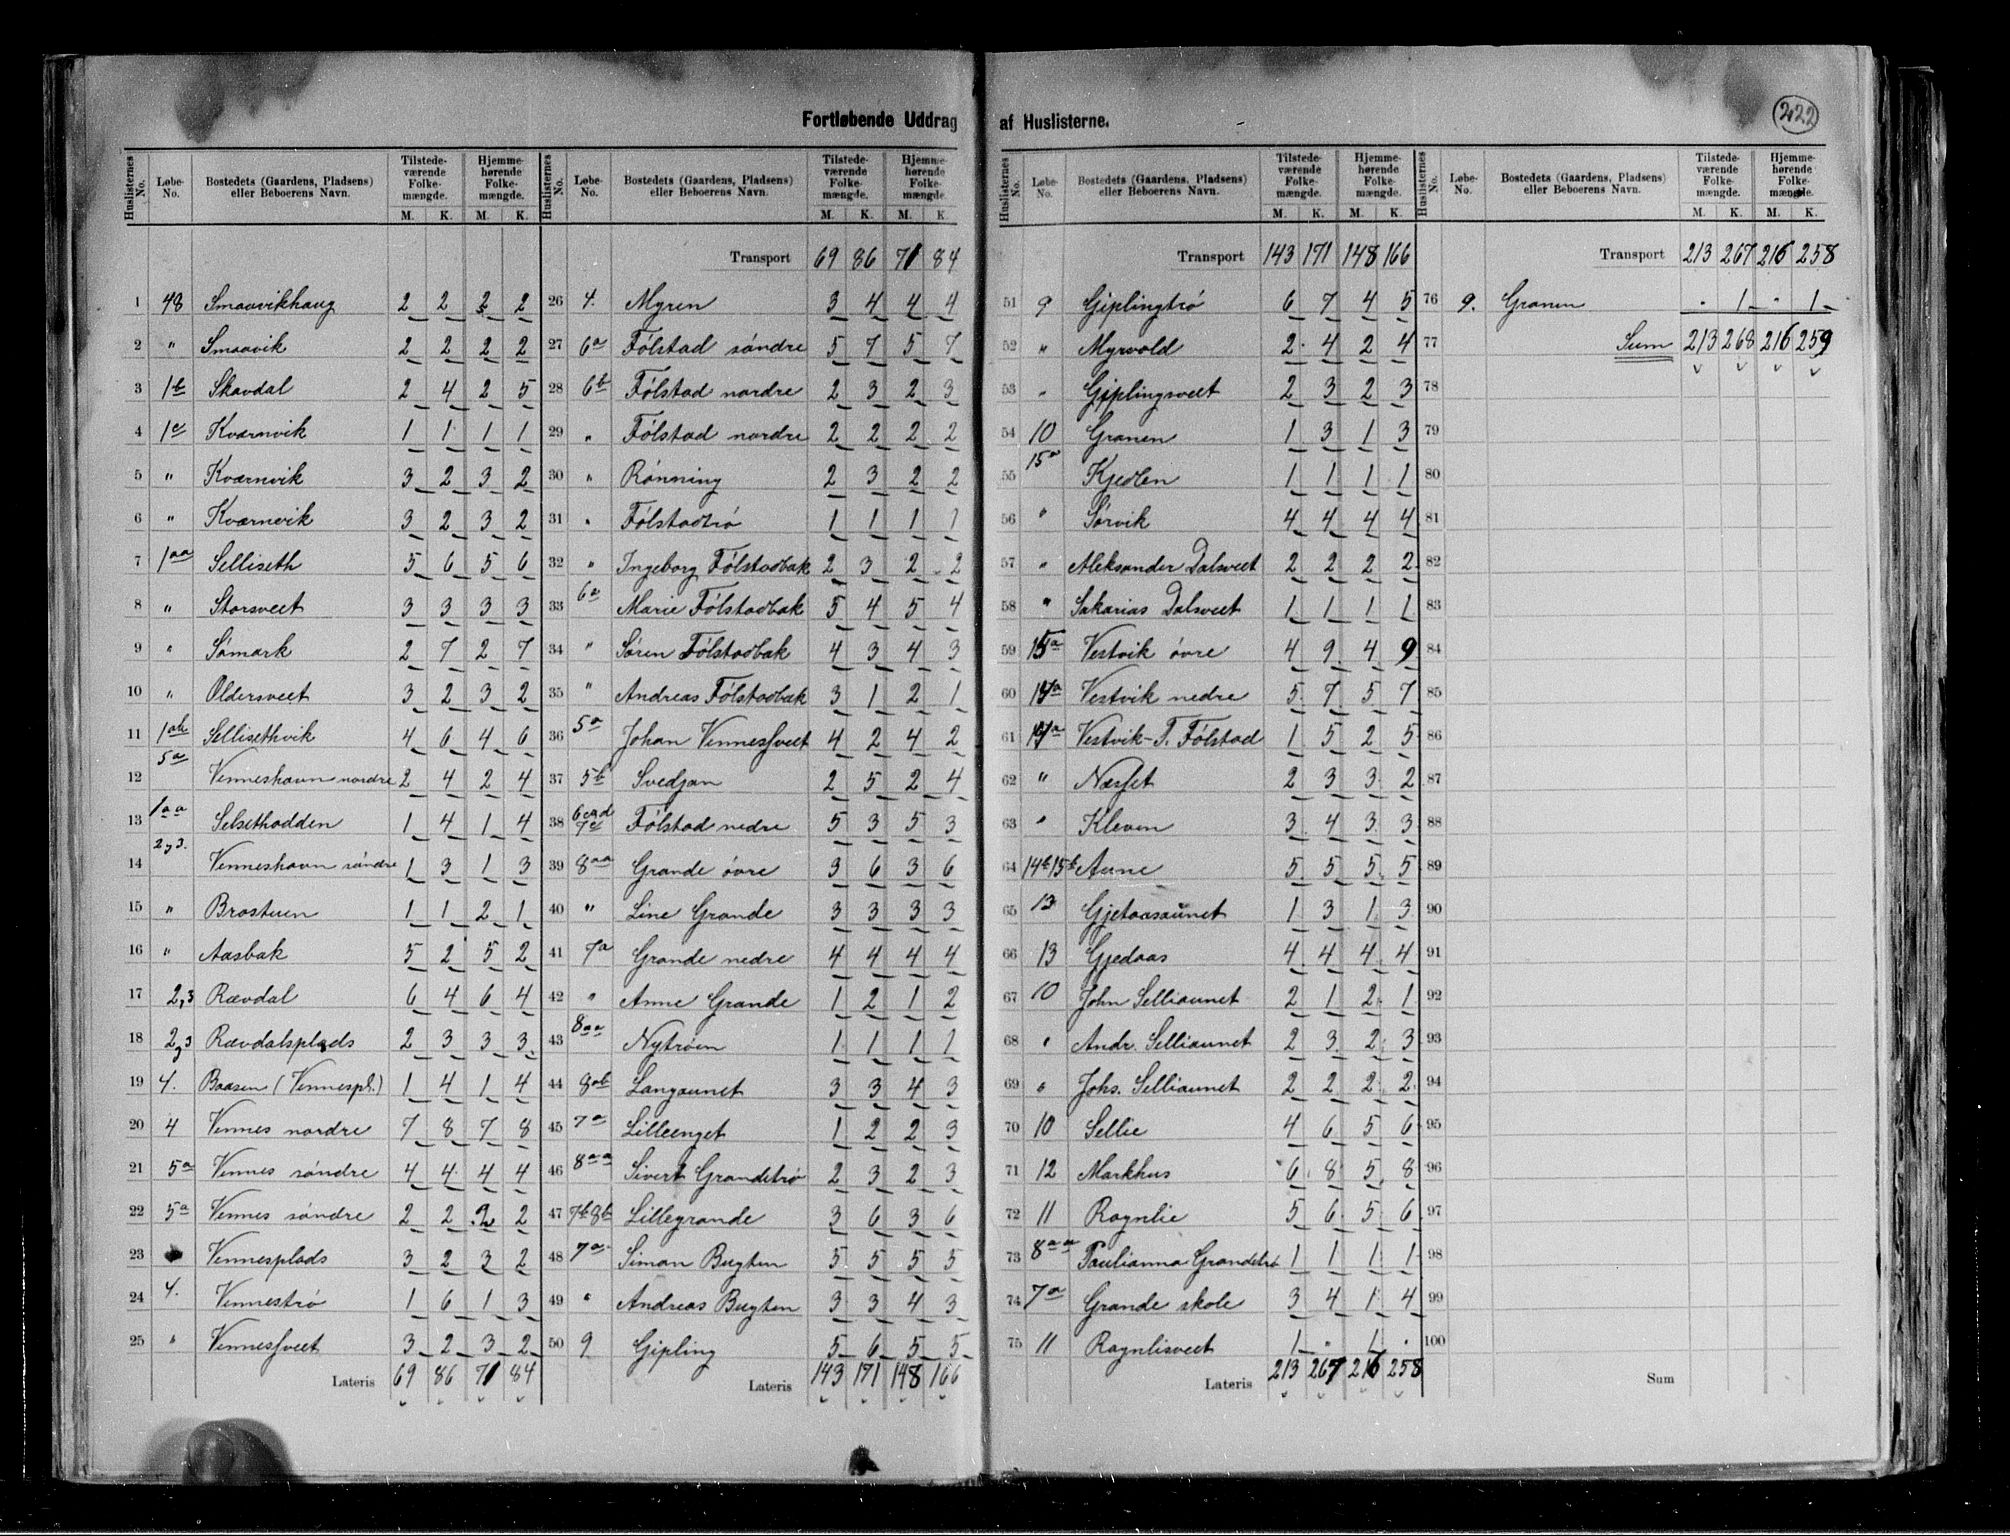 Fortløbende Uddrag af Huslisterne.
422
Huslisternes No. | Løbe-No. | Bostedets (Gaardens, Pladsens) eller Beboerens Navn. | Tilstedeværende Folkemængde. M. K. | Hjemmehørende Folkemængde. M. K.
1 48 Smaavikhaug 2 2 2 2
2 " Smaavik 2 2 2 2
3 1b Skavdal 2 4 2 5
4 1c Kværnvik 1 1 1 1
5 " Kværnvik 3 2 3 2
6 " Kværnvik 3 2 3 2
7 1aa Selliseth 5 6 5 6
8 " Storsveet 3 3 3 3
9 " Sømark 2 7 2 7
10 " Oldersveet 3 2 3 2
11 1ab Sellisethvik 4 6 4 6
12 5a Venneshavn nordre 2 4 2 4
13 1aa Selsethodden 1 4 1 4
14 2,3. Venneshavn søndre 1 3 1 3
15 " Brostuen 1 1 2 1
16 " Aasbak 5 2 5 2
17 2,3 Rævdal 6 4 6 4
18 2,3 Rævdalsplads 2 3 3 3
19 4. Baasen (Vennespl.) 1 4 1 4
20 4 Vennes nordre 7 8 7 8
21 5a Vennes søndre 4 4 4 4
22 5a Vennes søndre 2 2 2 2
23 Vennesplads 3 2 3 2
24 4. Vennestrø 1 6 1 3
25 " Vennessveet 3 2 3 2
Lateris 69 86 71 84
Huslisternes No. | Løbe-No. | Bostedets (Gaardens, Pladsens) eller Beboerens Navn. | Tilstedeværende Folkemængde. M. K. | Hjemmehørende Folkemængde M. K.
Transport 69 86 71 84
26 4. Myren 3 4 4 4
27 6a Følstad søndre 5 7 5 7
28 6b Følstad nordre 2 3 2 3
29 " Følstad nordre 2 2 2 2
30 " Rønning 2 3 2 2
31 " Følstadtrø 1 1 1 1
32 " Ingeborg Følstadbak 2 3 2 2
33 6a Marie Følstadbak 5 4 5 4
34 " Søren Følstadbak 4 3 4 3
35 " Andreas Følstadbak 3 1 2 1
36 5a Johan Vennessveet 4 2 4 2
37 5b Svedjan 2 5 2 4
38 Følstad nedre 5 3 5 3
39 8aa Grande øvre 3 6 3 6
40 " Line Grande 3 3 3 3
41 7a Grande nedre 4 4 4 4
42 " Anne Grande 1 2 1 2
43 8aa Nytrøen 1 1 1 1
44 8ab Langaunet 3 3 4 3
45 7a Lilleenget 1 2 2 3
46 8aa Sivert Grandetrø 2 3 2 3
47 7b8b Lillegrande 3 6 3 6
48 7a. Simon Bugten 5 5 5 5
49 " Andreas Bugten 3 3 4 3
50 9 Gipling 5 6 5 5
Lateris 143 171 148 166
Huslisternes No. | Løbe-No. | Bostedets (Gaardens, Pladsens) eller Beboerens Navn. | Tilstedeværende Folkemængde. M. K. | Hjemmehørende Folkemængde. M. K.
Transport 143 171 148 166
51 9 Giplingtrø 6 7 4 5
52 " Myrvold 2 4 2 4
53 " Giplingsveet 2 3 2 3
54 10 Granen 1 3 1 3
55 15a Kjedlen 1 1 1 1
56 " Sørvik 4 4 4 4
57 " Aleksander Dalsveet 2 2 2 2
58 " Sakarias Dalsveet 1 1 1 1
59 15a Vestvik øvre 4 9 4 9
60 14a Vestvik nedre 5 7 5 7
61 14a Vestvik-T. Følstad 1 5 2 5
62 " Næsset 2 3 3 2
63 " Kleven 3 4 3 3
64 14b15b Aune 5 5 5 5
65 13 Gjetaasaunet 1 3 1 3
66 13 Gjedaas 4 4 4 4
67 10 John Selliaunet 2 1 2 1
68 " Andr. Selliaunet 2 3 2 3
69 " Johs. Selliaunet 2 2 2 2
70 10 Sellie 4 6 5 6
71 12 Markhus 6 8 5 8
72 11 Ragnlie 5 6 5 6
73 8aa Paulianna Grandetrø 1 1 1 1
74 7a Grande skole 3 4 1 4
75 11 Ragnlisveet 1 . 1 .
Lateris 213 267 216 258
Huslisternes No. | Løbe-No. | Bostedets (Gaardens, Pladsens) eller Beboerens Navn. | Tilstedeværende Folkemængde. M. K. | Hjemmehørende Folkemængde. M. K.
Transport 213 267 216 258
76 9. Granen . 1 . 1
77 Sum 213 268 216 259
78
79
80
81
82
83
84
85
86
87
88
89
90
91
92
93
94
95
96
97
98
99
100
Sum